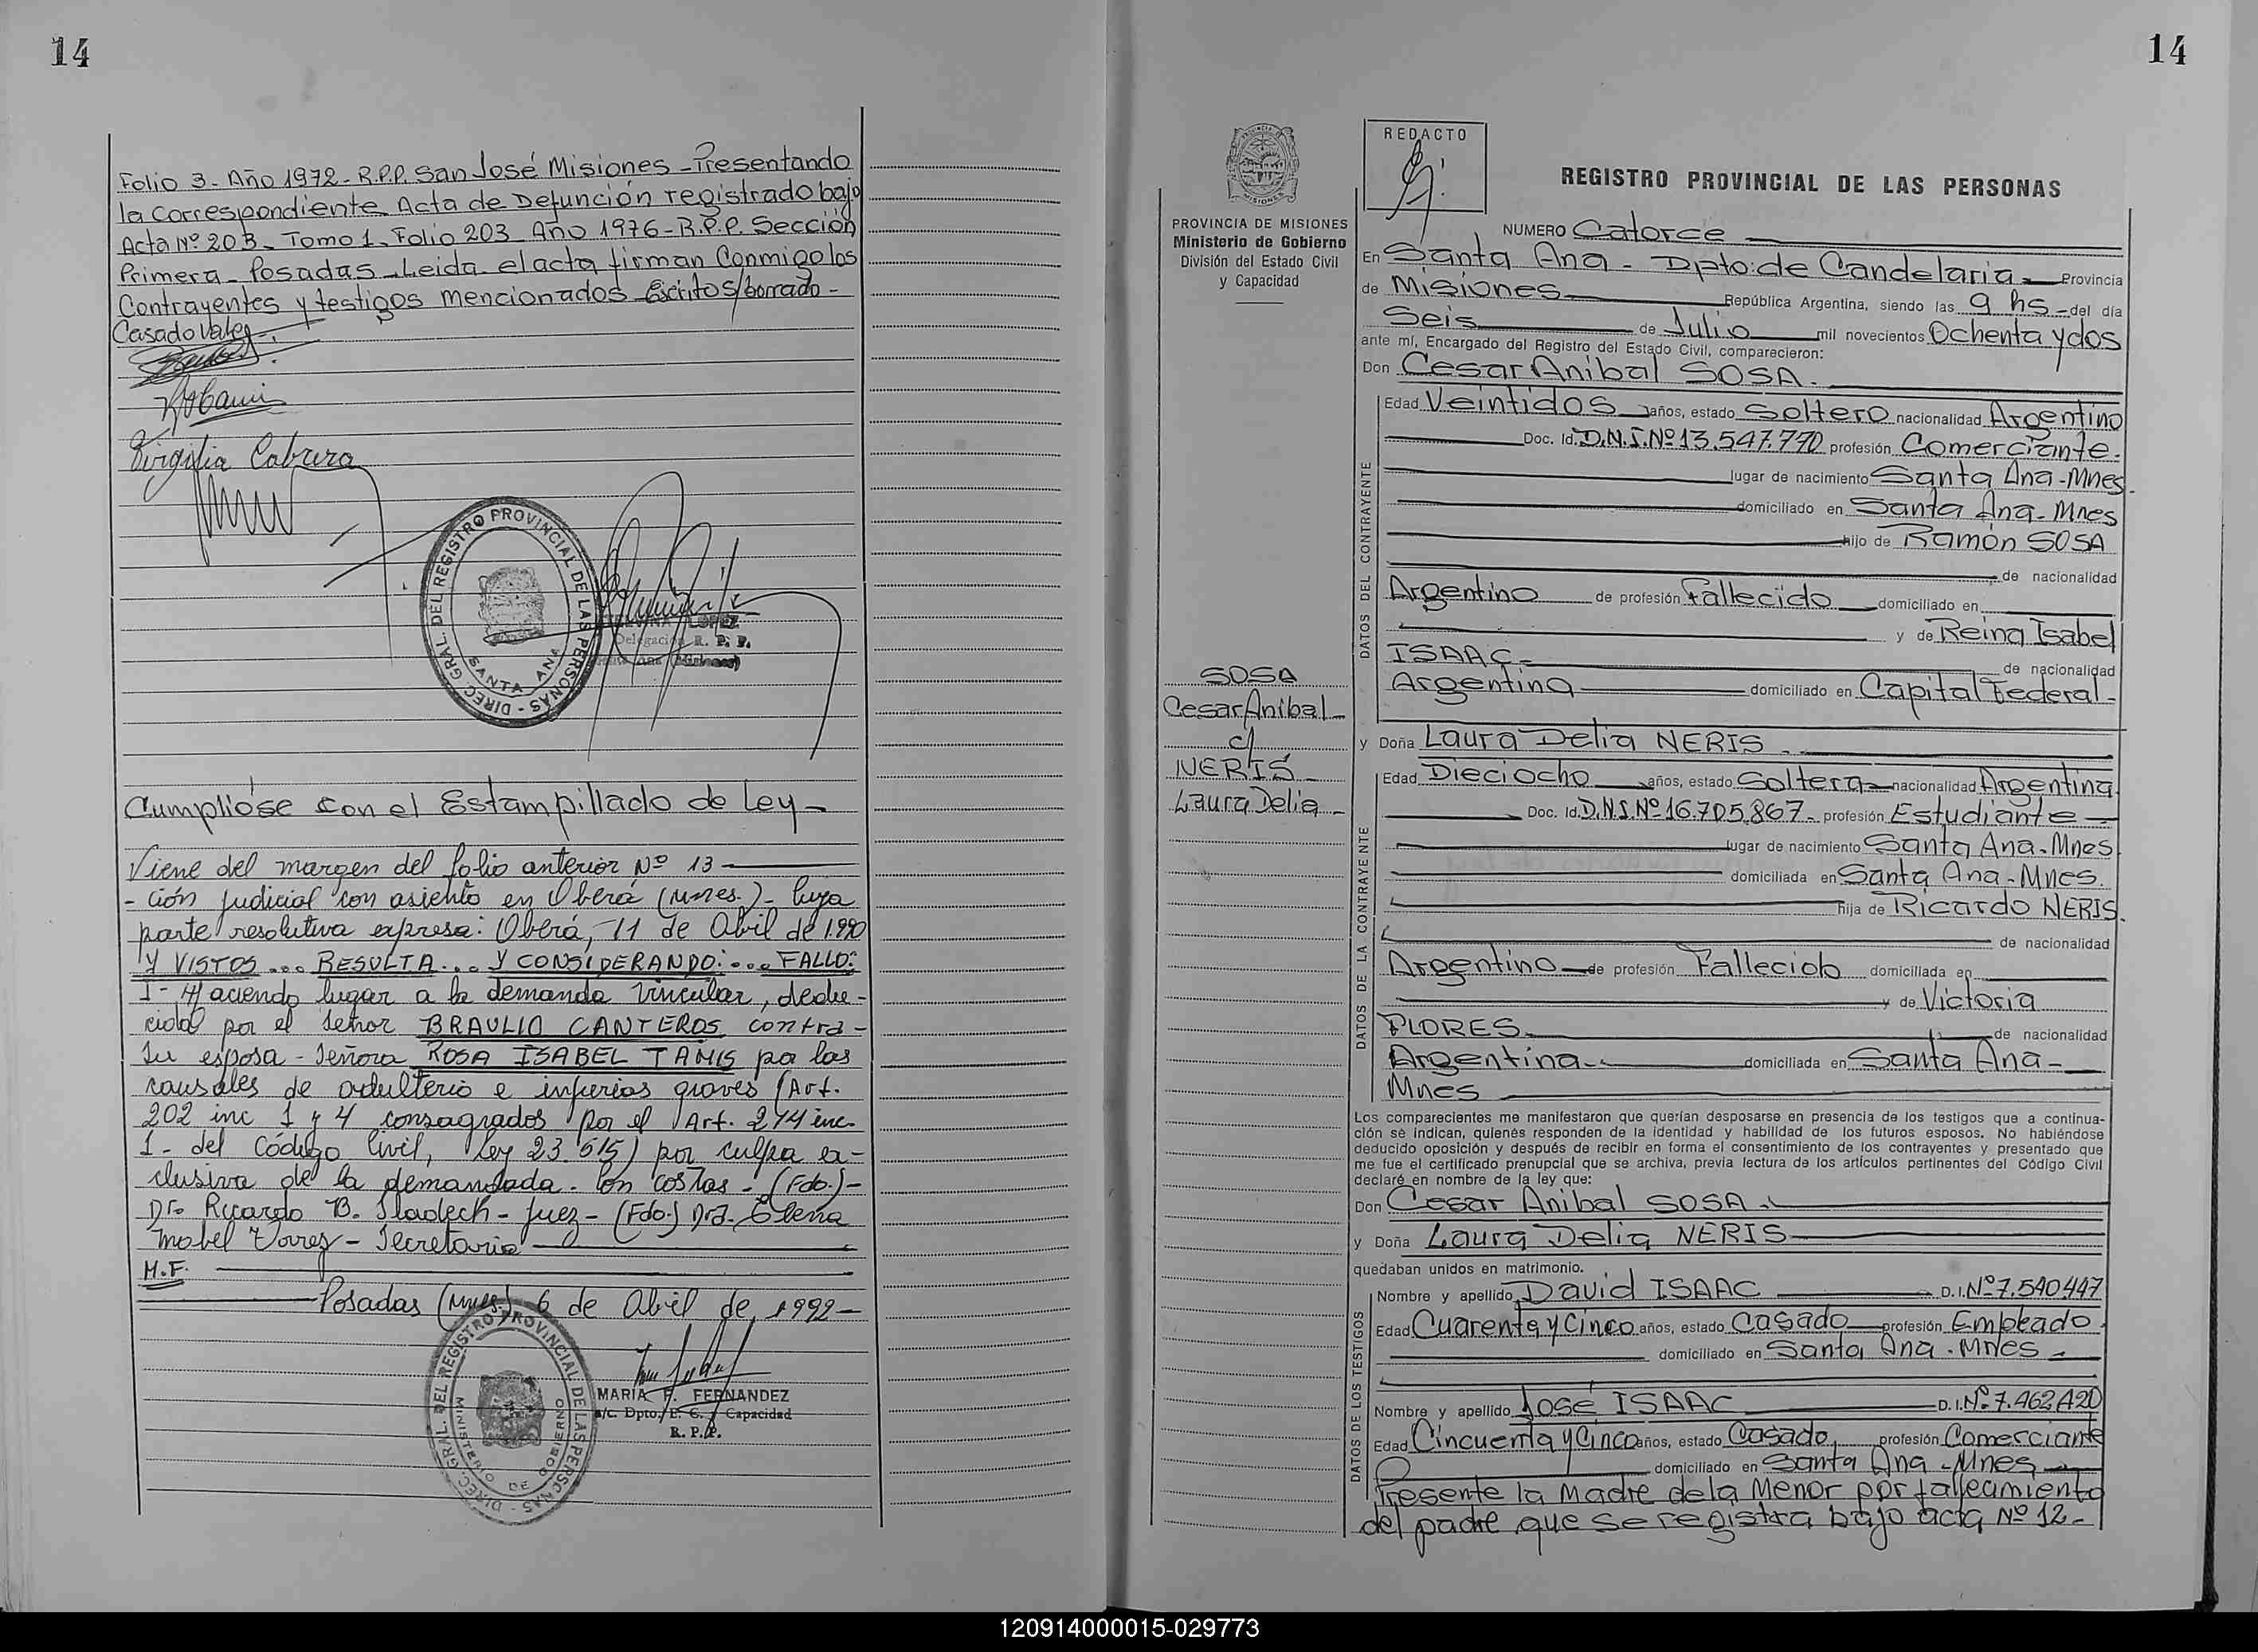 14
Folio 3- Año 1972- R.P.P. San José Misiones - Presentando
la Correspondiente Acta de Defunción registrado bajo
Acta Nº 203- Tomo 1- Folio 203 Año 1976- R.P.P. Sección
Primera- Posadas - Leida el acta firman Conmigo los
Contrayentes y testigos mencionados Escritos/borrado-
Casado Vale-
Virgilia Cabrera
DIREC. GRAL. DEL REGISTRO PROVINCIAL DE LAS PERSONAS - SANTA ANA
LOPEZ
Delegación R. P. P.
(Misiones)
Cumplióse con el Estampillado de Ley-
Viene del margen del folio anterior Nº 13-
- ción judicial con asiento en Oberá (Mnes.)- Cuya
parte resolutiva expresa: Oberá, 11 de Abril de 1.990
Y VISTOS... RESULTA... Y CONSIDERANDO:... FALLO:
I- Haciendo lugar a la demanda vincular, dedu-
cida por el señor BRAULIO CANTEROS contra-
su esposa - señora ROSA ISABEL TAMIS por las
causales de adulterio e injurias graves (Art.
202 inc 1 y 4 consagrados por el Art. 214 inc.
1- del Código Civil, Ley 23.515) por culpa ex-
clusiva de la demandada. Con costas- (Fdo.)-
Dr. Ricardo B. Sladech- Juez- (Fdo.) Dra. Elena
Mabel Torrez- Secretaria
M.F.
Posadas (Mnes.), 6 de Abril de 1992-
DIREC. GRAL. DEL REGISTRO PROVINCIAL DE LAS PERSONAS - MINISTERIO DE GOBIERNO
MARIA F. FERNANDEZ
a/c. Dpto. E. C. y Capacidad
R. P. P.
14
PROVINCIA DE MISIONES
Ministerio de Gobierno
División del Estado Civil
y Capacidad
SOSA
Cesar Anibal
c/
NERIS
Laura Delia
REDACTO
REGISTRO PROVINCIAL DE LAS PERSONAS
NUMERO Catorce
En Santa Ana- Dpto: de Candelaria- Provincia
de Misiones República Argentina, siendo las 9 hs- del día
Seis de Julio mil novecientos Ochenta y dos
ante mí, Encargado del Registro del Estado Civil, comparecieron:
Don Cesar Anibal SOSA.
DATOS DEL CONTRAYENTE
Edad Veintidos años, estado Soltero nacionalidad Argentino
Doc. Id. D.N.I.Nº 13.547.770 profesión Comerciante-
lugar de nacimiento Santa Ana-Mnes-
domiciliado en Santa Ana- Mnes
hijo de Ramón SOSA
de nacionalidad
Argentino de profesión Fallecido domiciliado en
y de Reina Isabel
ISAAC- de nacionalidad
Argentina domiciliado en Capital Federal-
y Doña Laura Delia NERIS
DATOS DE LA CONTRAYENTE
Edad Dieciocho años, estado Soltera nacionalidad Argentina
Doc. Id. D.N.I.Nº 16.705.867- profesión Estudiante
lugar de nacimiento Santa Ana-Mnes
domiciliada en Santa Ana-Mnes.
hija de Ricardo NERIS.
de nacionalidad
Argentino de profesión Fallecido domiciliada en
y de Victoria
FLORES de nacionalidad
Argentina- domiciliada en Santa Ana-
Mnes
Los comparecientes me manifestaron que querían desposarse en presencia de los testigos que a continua-
ción se indican, quienes responden de la identidad y habilidad de los futuros esposos. No habiéndose
deducido oposición y después de recibir en forma el consentimiento de los contrayentes y presentado que
me fue el certificado prenupcial que se archiva, previa lectura de los artículos pertinentes del Código Civil
declaré en nombre de la ley que:
Don Cesar Anibal SOSA
y Doña Laura Delia NERIS
quedaban unidos en matrimonio.
DATOS DE LOS TESTIGOS
Nombre y apellido David ISAAC D.I.Nº 7.540.447
Edad Cuarenta y Cinco años, estado Casado profesión Empleado
domiciliado en Santa Ana. Mnes-
Nombre y apellido José ISAAC D.I.Nº 7.462.420
Edad Cincuenta y Cinco años, estado Casado profesión Comerciante
domiciliado en Santa Ana-Mnes
Presente la Madre de la Menor por fallecimiento
del padre que se registra bajo acta Nº 12-
120914000015-029773